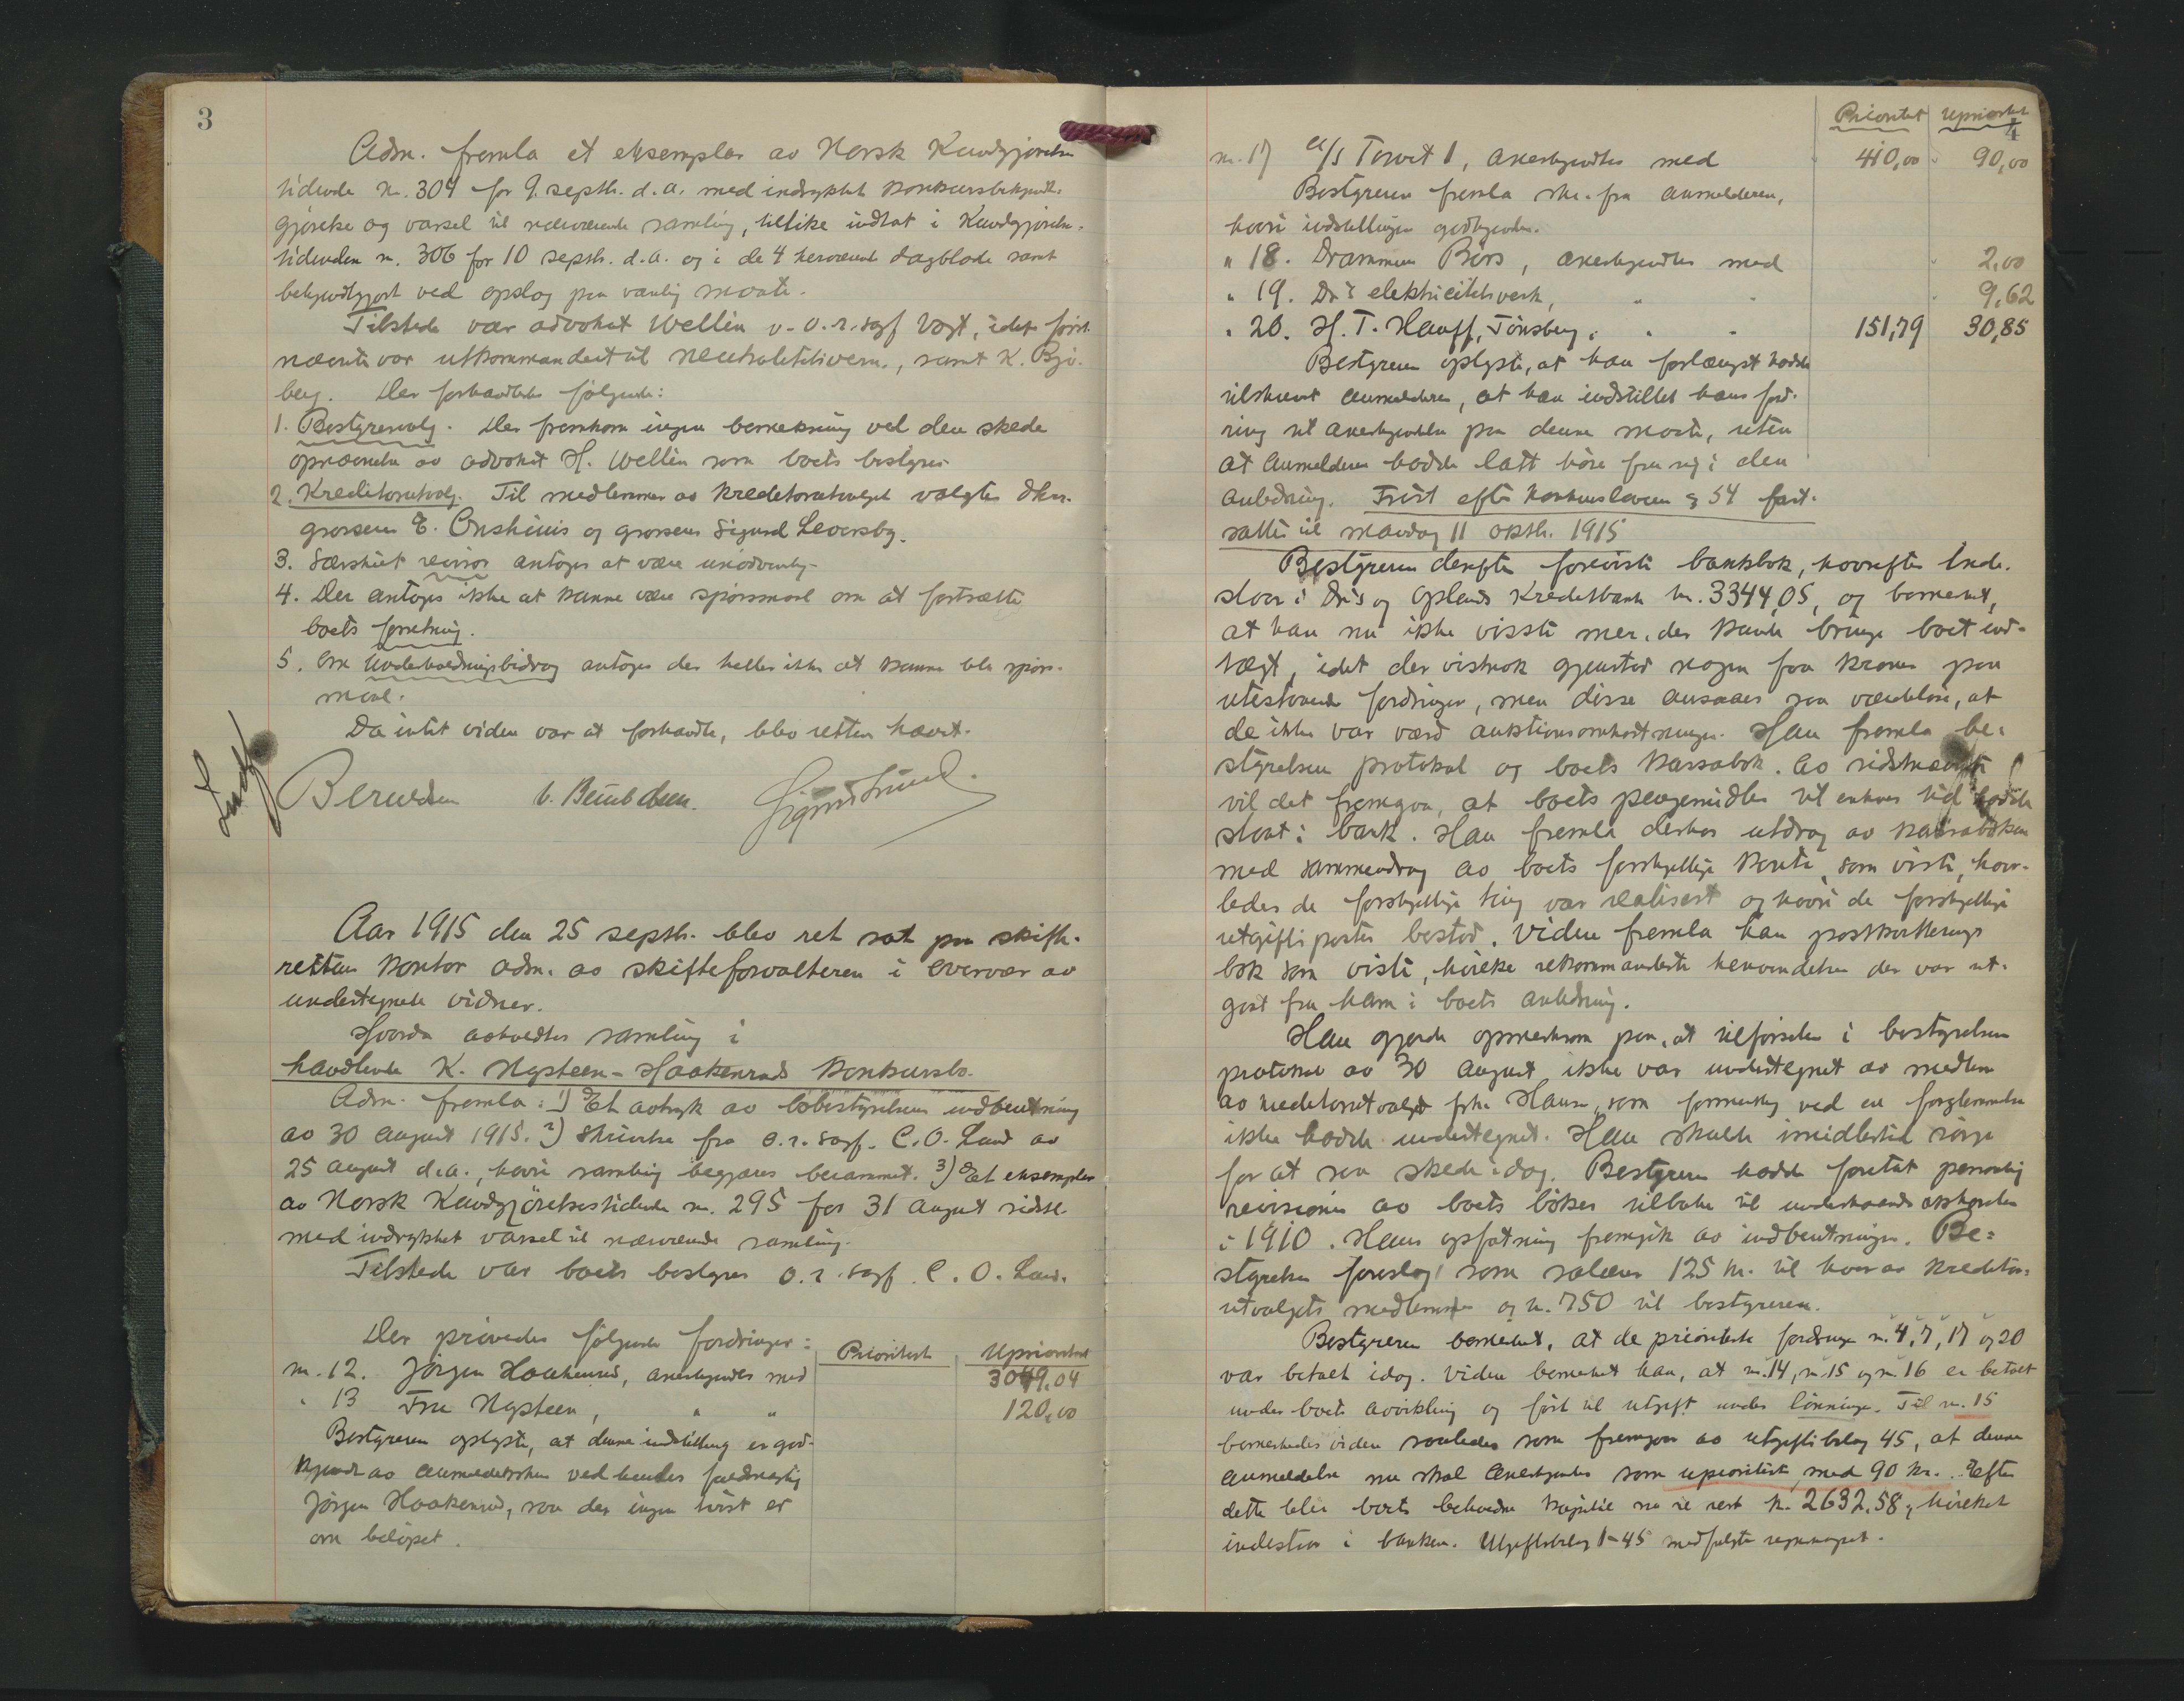 3
Adm. fremla et eksemplar av Norsk Kundgjørelses
tidende nr. 304 for 9. septbr. d.a. med indrykket konkursbekjendt-
gjørelse og varsel til nærværende samling, tillike indtat i Kundgjørelses-
tidenden nr. 306 for 10 septbr. d.a. og i de 4 herværende dagblade samt
bekjendtgjort ved opslag paa vanlig maate.
Tilstede var advokat Wellén v. o.r.sagf Vogt, idet først-
nævnte var utkommandert til neutralitetsvern, samt K. Bjø-
berg. Der forhandledes følgende:
1. Bestyrervalg. Der fremkom ingen bemerkning ved den skede
opnævnelse av advokat H. Wellén som boets bestyrer
2. Kreditorutvalg. Til medlemmer av kreditorutvalget valgtes dhrr.
grosserer E. Onshuus og grosserer Sigurd Leversby.
3. Særskilt revisor antoges at være unødvendig
4. Der antoges ikke at kunne være spørsmaal om at fortsætte
boets forretning.
5. Om Underholdningsbidrag antoges der heller ikke at kunne bli spørs-
maal.
Da intet videre var at forhandle, blev retten hævet.
Berendsen V. Berntdsen. Sigurd Lund.
Aar 1915 den 25 septbr. blev ret sat paa skifte-
rettens kontor adm. av skifteforvalteren i overvær av
undertegnede vidner.
Hvorda avholdtes samling i
handlende K. Nysteen-Haakenruds konkursbo.
Adm. fremla: 1) Et avtryk av bobestyrelsens indberetning
av 30 august 1915. 2) Skrivelse fra o.r.sagf. C.O. Lund av
25 august d.a., hvori samling begjæres berammet. 3) Et eksemplar
av Norsk Kundgjörelsestidende nr. 295 for 31 august sidstl.
med indrykket varsel til nærværende samling.
Tilstede var boets bestyrer o.r.sagf. C.O. Lund.
Der prøvedes følgende fordringer: Prioritert Uprioritert
nr. 12. Jörgen Haakenrud, anerkjendes med 3049.04
" 13 Fru Nysteen, " " 120,00
Bestyreren oplyste, at denne indstilling er god-
kjendt av anmeldersken ved hendes
Jörgen Haakenrud, saa der ingen tvist er
om beløpet.
Prioritet Uprioritet
4
nr. 17 A/S Torvet 1, anerkjendtes med 410,00 90,00
Bestyreren fremla skr. fra anmelderen,
hvori indstillingen godkjendes.
" 18. Drammens Børs, anerkjendtes med 2,00
" 19. Dr's elektricitetsverk, " " 9,62
" 20. H. T. Hauff, Tönsberg, " " 151,79 30,85
Bestyreren oplyste, at han forlængst hadde
tilskrevet anmelderen, at han indstillet hans ford-
ring til anerkjendelse paa denne maate, uten
at anmelderen hadde latt høre fra sig i den
anledning. Frist efter konkursloven § 54 fast-
sattes til mandag 11 oktbr. 1915
Bestyreren derefter foreviste bankbok, hvorefter inde-
staar i Dr's og Oplands Kreditbank kr. 3344,05, og bemerket,
at han nu ikke visste mer, der kunde bringe boet ind-
tægt, idet der vistnok gjenstod nogen faa kroner paa
utestaaende fordringer, men disse ansaaes saa værdiløse, at
de ikke var værd auktionsomkostninger. Han fremla be-
styrelsens protokol og boets kassabok. Av sidstnævnte
vil det fremgaa, at boets pengemidler til enhver tid hadde
staat i bank. Han fremla derhos utdrag av kassaboken
med sammendrag av boets forskjellige konti, som viste, hvor-
ledes de forskjellige ting var realisert og hvori de forskjellige
utgiftsposter bestod. Videre fremla han postkvitterings
bok som viste, hvilke rekommanderte henvendelser der var ut-
gaat fra ham i boets anledning.
Han gjorde opmerksom paa, at tilførselen i bestyrelsens
protokol av 30 august ikke var undertegnet av medlem
av kreditorutvalget frk. Hansen, som formentlig ved en forglemmelse
ikke hadde undertegnet. Han skulde imidlertid sørge
for at saa skede idag. Bestyreren hadde foretat personlig
revision av boets bøker tilbake til underhaandsakkorden
i 1910. Hans opfatning fremgik av indberetningen. Be-
styrelsen foreslog som salærer 125 kr. til hver av kreditor-
utvalgets medlemmer og kr. 750 til bestyreren.
Bestyreren bemerket, at de prioriterte fordringer nr. 4, 7, 17 og 20
var betalt idag. Videre bemerket han, at nr. 14, nr. 15 og nr. 16 er betalt
under boets avvikling og ført til utgift under lønninger. Til nr. 15
bemerkedes videre saaledes som fremgaar av utgiftsbilag 45, at denne
anmeldelse nu skal anerkjendes som uprioritert med 90 kr. Efter
dette blir boets beholdne kapital nu til rest kr. 2632.58, hvilket
indestaar i banken. Utgiftsbilag 1-45 medfulgte regnskapet.